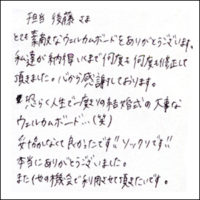 担当 後藤 さま
とても素敵なウェルカムボードをありがとうございます。
私達が納得いくまで何度も何度も修正して
頂きました。心から感謝しております。
恐らく人生で一度きりの結婚式の大事な
ウェルカムボード…(笑)
妥協しなくて良かったです!!ソックリです!!
本当にありがとうございました。
また何かの機会で利用させて頂きたいです。